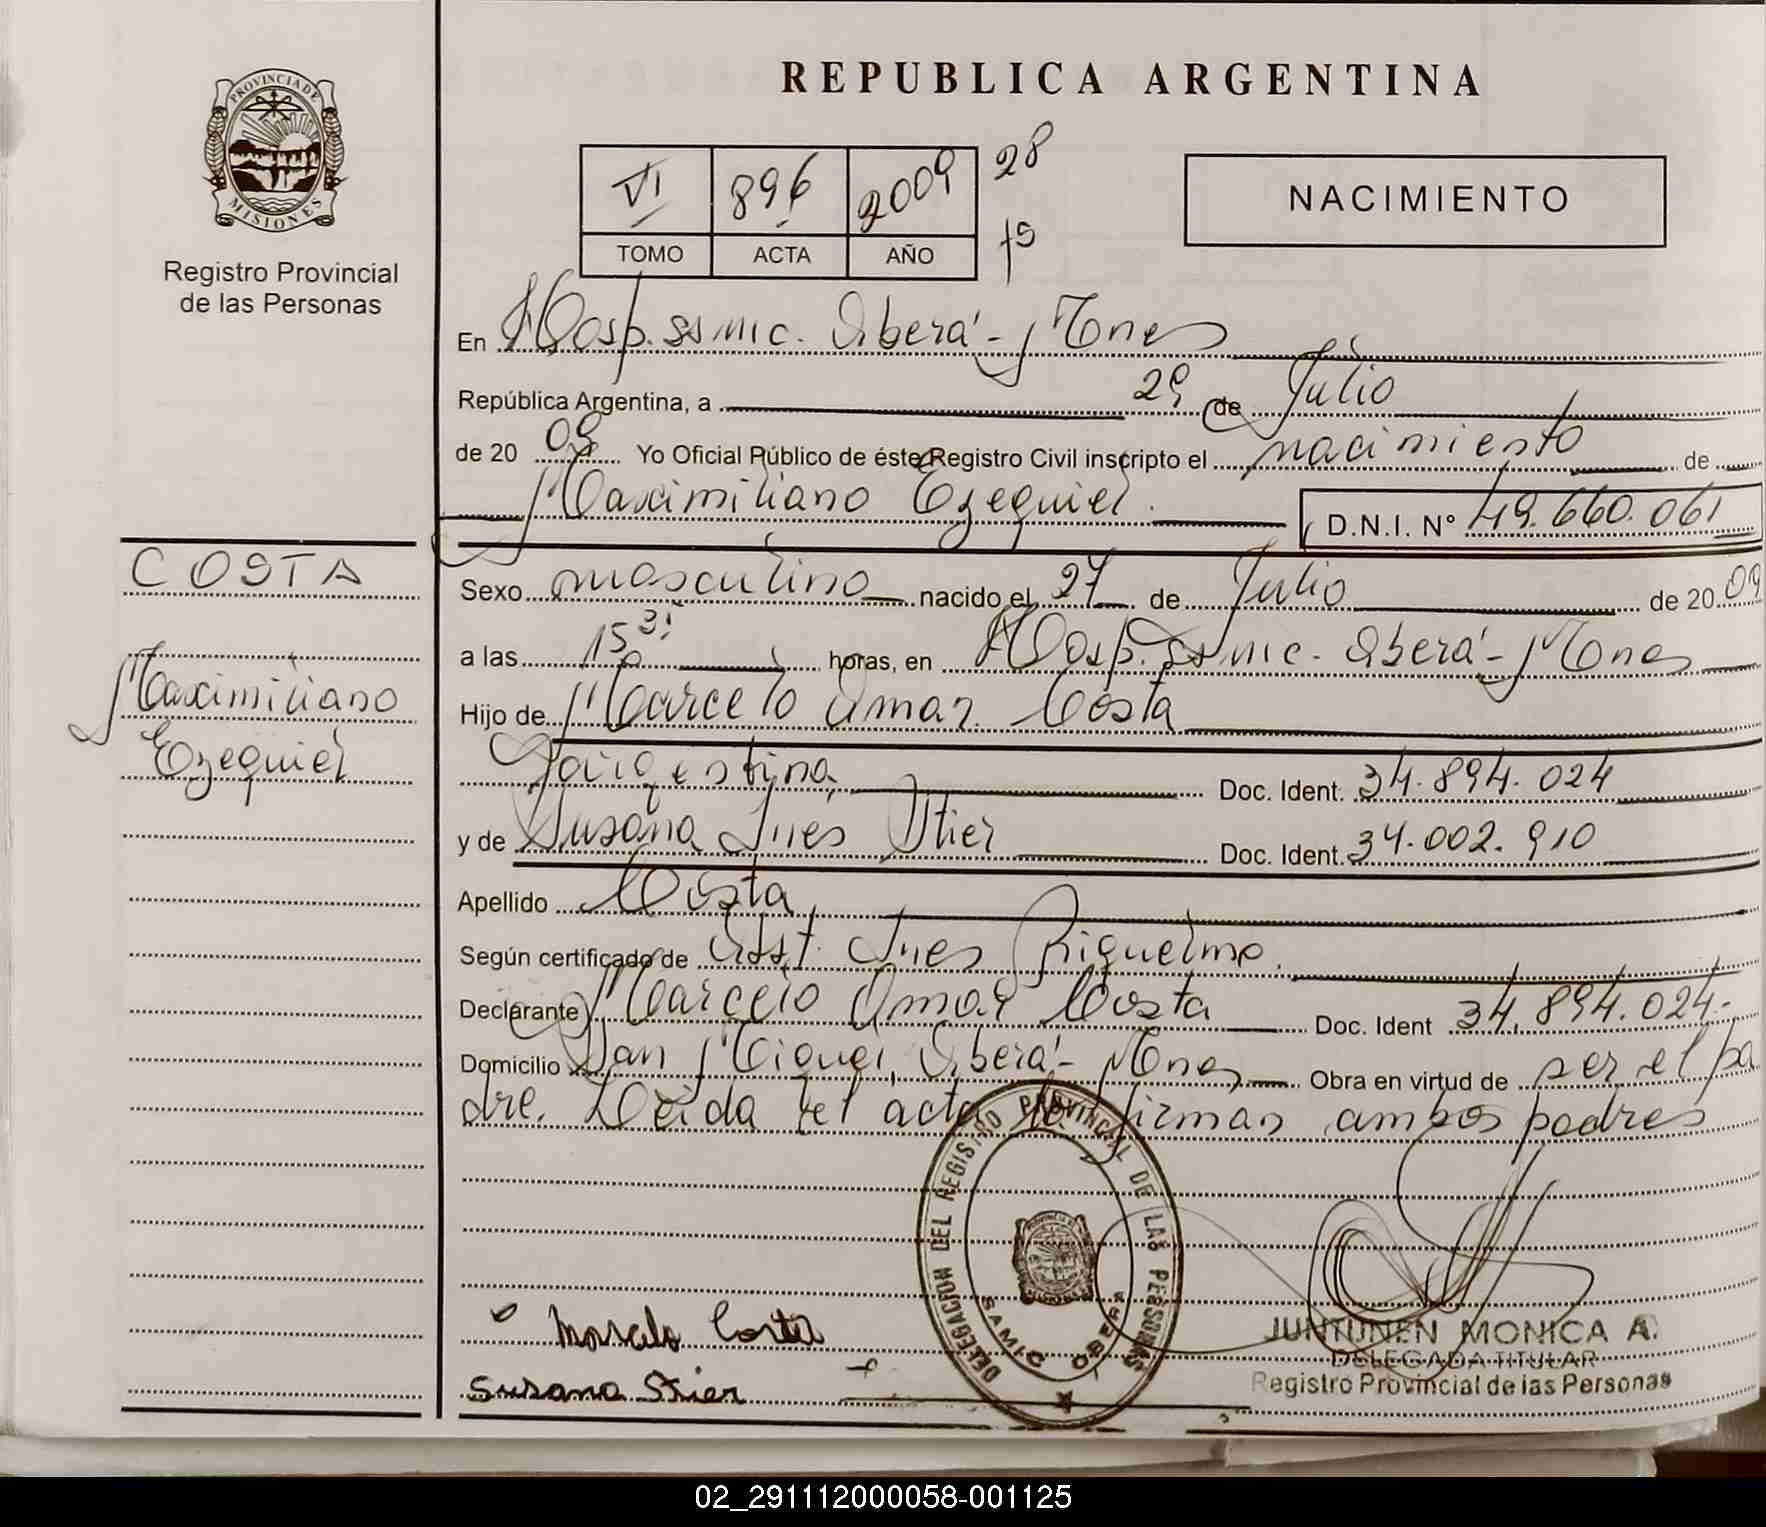 PROVINCIA DE
MISIONES
Registro Provincial
de las Personas
REPUBLICA ARGENTINA
VI 896 2009 28
TOMO ACTA AÑO fs
NACIMIENTO
En Hosp. ss mic. Oberá - Mnes
República Argentina, a 29 de Julio
de 20 09 Yo Oficial Público de éste Registro Civil inscripto el nacimiento de
Maximiliano Ezequiel. D.N.I. Nº 49.660.061
COSTA
Maximiliano
Ezequiel
Sexo masculino nacido el 27 de Julio de 20 09
a las 15 horas, en Hosp. ss mic. Oberá - Mnes
Hijo de Marcelo Omar Costa
Argentina Doc. Ident. 34.894.024
y de Susana Inés Stier Doc. Ident. 34.002.910
Apellido Costa
Según certificado de Obst. Ines Riquelme.
Declarante Marcelo Omar Costa Doc. Ident 34.894.024-
Domicilio San Miguel, Oberá - Mnes Obra en virtud de ser el pa
dre. Leida el acta la firman ambos padres
DELEGACION DEL REGISTRO PROVINCIAL DE LAS PERSONAS
SAMIC OBERA
Marcelo Costa
Susana Stier
JUNTUNEN MONICA A.
DELEGADA TITULAR
Registro Provincial de las Personas
02_291112000058-001125